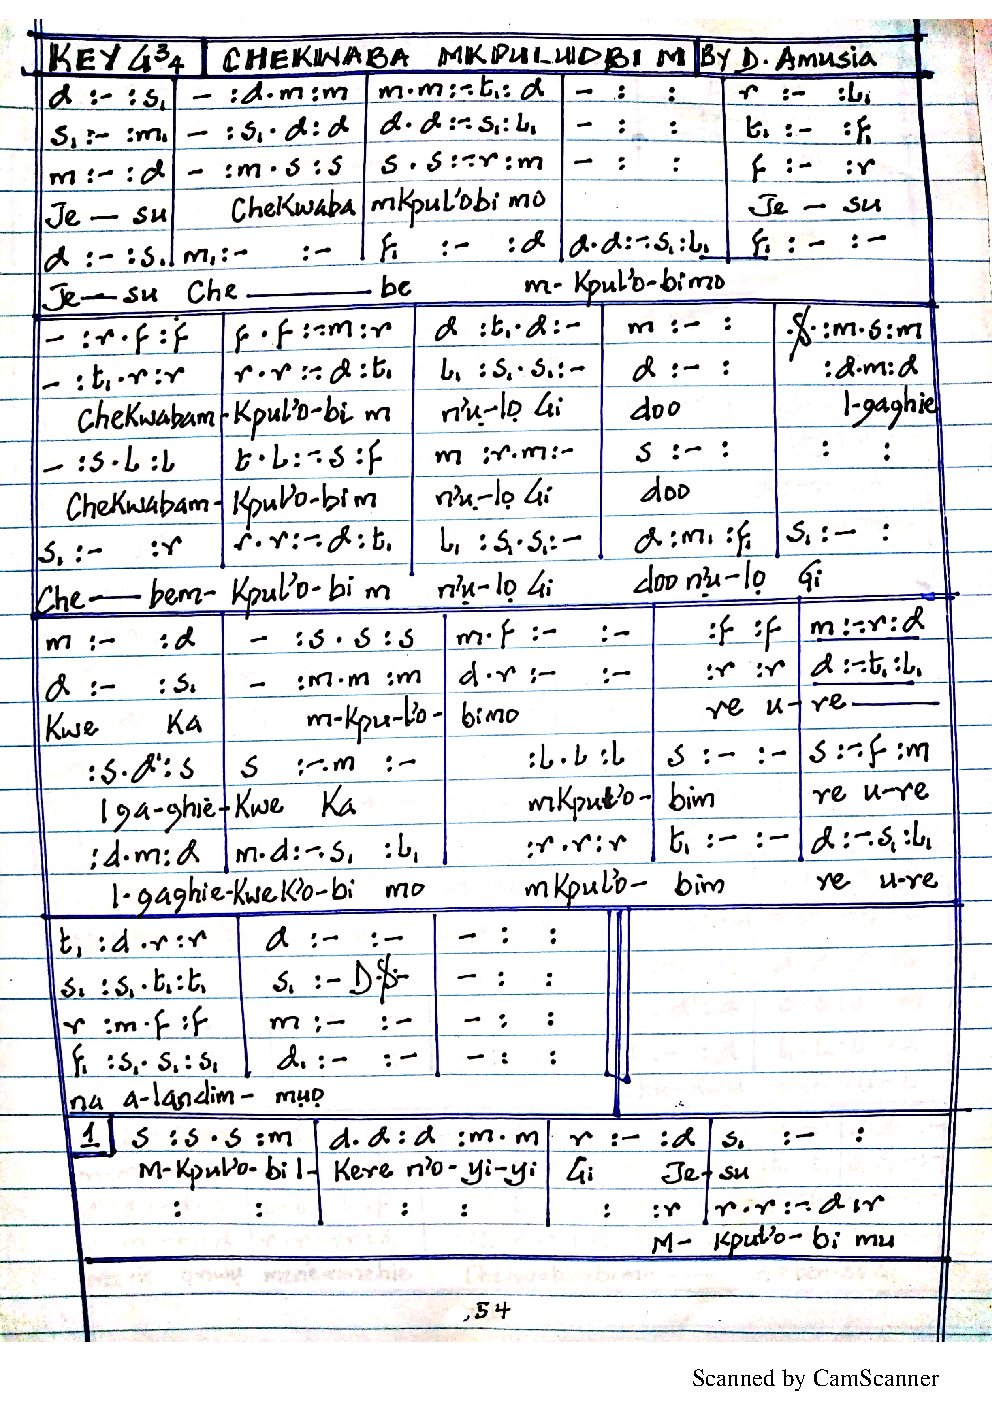 KEY G 3/4 | CHEKWABA MKPULUOBI M | By D. Amusia
d :- :s₁ | - :d.m :m | m.m :-.t₁ : d | - : : | r :- :l₁
s₁ :- :m₁ | - :s₁.d :d | d.d :-.s₁ :l₁ | - : : | t₁ :- :f₁
m :- :d | - :m.s :s | s.s :-.r :m | - : : | f :- :r
Je — su CheKwaba mKpul'obi mo Je — su
d :- :s₁ | m₁ :- :- | f₁ :- :d | d.d :-.s₁ :l₁ | f₁ :- :-
Je — su Che ——— be m- Kpul'o-bimo
- :r.f :f | f.f :-.m :r | d :t₁.d :- | m :- : | 𝄋 :m.s :m
- :t₁.r :r | r.r :-.d :t₁ | l₁ :s₁.s₁ :- | d :- : | :d.m :d
CheKwabam-Kpul'o-bi m n'ụ-lọ Gi doo I-gaghie
- :s.l :l | t.l :-.s :f | m :r.m :- | s :- : | : :
CheKwabam-Kpul'o-bim n'ụ-lọ Gi doo
s₁ :- :r | r.r :-.d :t₁ | l₁ :s₁.s₁ :- | d :m₁ :f₁ | s₁ :- :
Che — bem- Kpul'o-bi m n'ụ-lọ Gi doo n'ụ-lọ Gi
m :- :d | - :s.s :s | m.f :- :- | :f :f | m :-.r :d
d :- :s₁ | - :m.m :m | d.r :- :- | :r :r | d :-.t₁ :l₁
Kwe Ka m-Kpu-l'o- bimo re u-re———
:s.d' :s | s :-.m :- | :l.l :l | s :- :- | s :-.f :m
I ga-ghie-Kwe Ka mKpul'o- bim re u-re
:d.m :d | m.d :-.s₁ :l₁ | :r.r :r | t₁ :- :- | d :-.s₁ :l₁
I-gaghie-KweK'o-bi mo mKpul'o- bim re u-re
t₁ :d.r :r | d :- :- | - : :
s₁ :s₁.t₁ :t₁ | s₁ :- D.𝄋- | - : :
r :m.f :f | m :- :- | - : :
f₁ :s₁.s₁ :s₁ | d₁ :- :- | - : :
na a-landim- mụọ
1 s :s.s :m | d.d :d :m.m | r :- :d | s₁ :- :
M-Kpul'o-bi I- Kere n'o-yi-yi Gi Je-su
: : | : : | : :r | r.r :-.d :r
M- Kpul'o-bi mu
54
Scanned by CamScanner